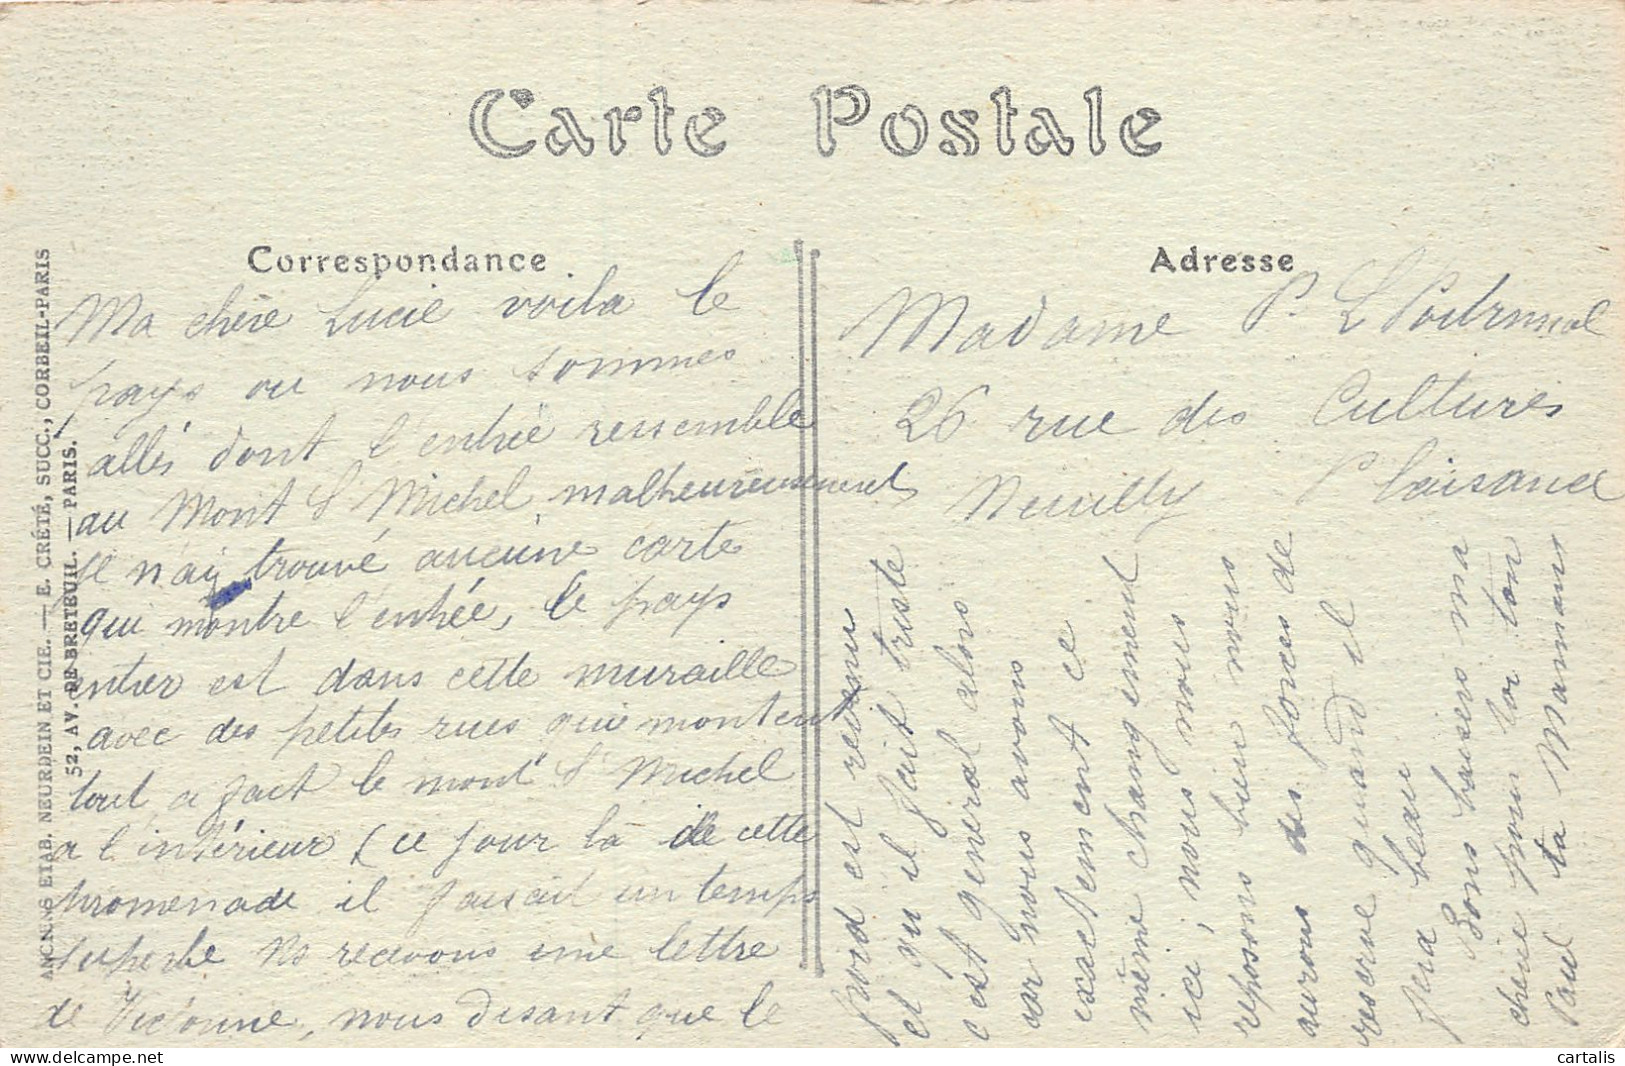 Carte Postale
Correspondance
Ma chère Lucie voila le
pays ou nous sommes
allés dont l'entrée ressemble
au Mont St Michel, malheureusement
je n'ai trouvé aucune carte
qui montre l'entrée, le pays
entier est dans cette muraille
avec des petites rues qui montent
tout a fait le mont St Michel
a l'intérieur (ce jour là de cette
promenade il faisait un temps
superbe Ns recevons une lettre
de Yvonne, nous disant que le
froid est revenu
et qu il fait triste
c'est général alors
car nous avons
exactement ce
même changement
ici, nous nous
reposons bien nous
aurons des forces de
reserve quand il
fera beau
Bons baisers ma
chérie pour toi ton
Paul ta Maman
Adresse
Madame P. L
26 rue des Cultures
Neuilly Plaisance
ANCNS ETAB. NEURDEIN ET CIE. — E. CRÉTÉ, SUCC., CORBEIL-PARIS
52, AV. DE BRETEUIL. — PARIS.
cartalis